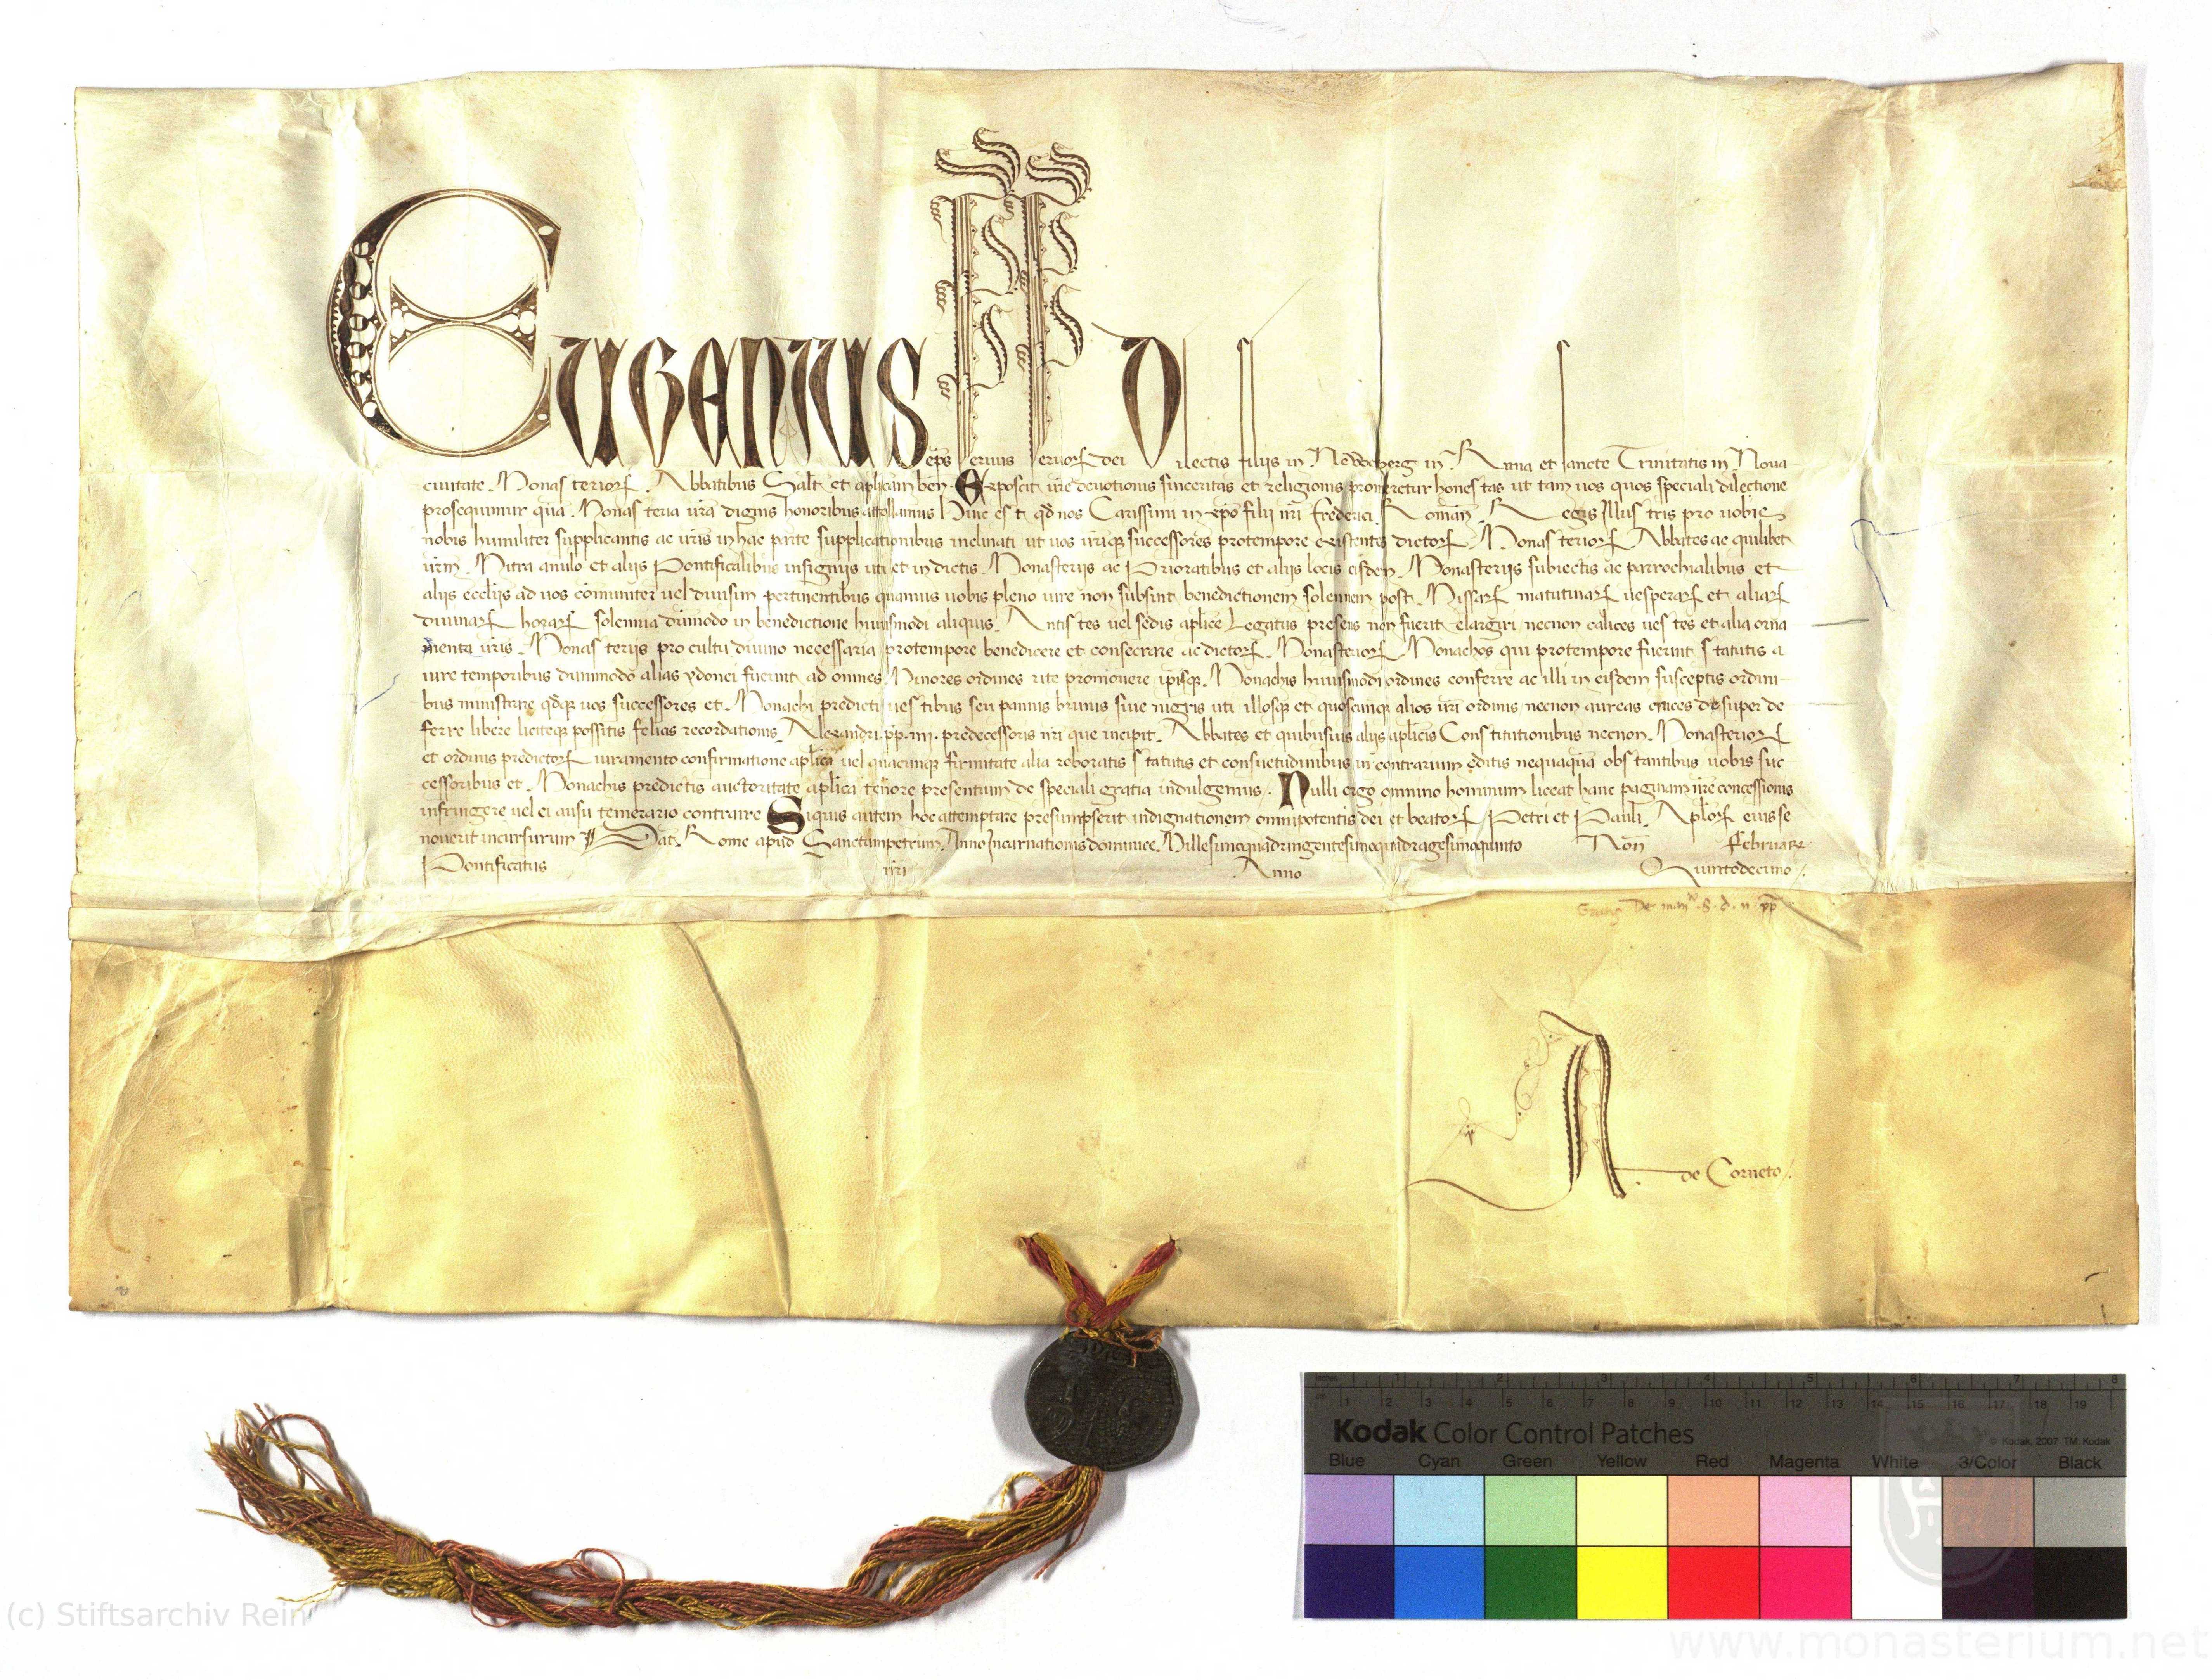 Eugenius eps Seruus Seruoꝝ dei Dilectis filijs in Newꝫperg in Runa et sancte Trinitatis in Noua
ciuitate Monasterioꝝ Abbatibus Salt et aplicam ben Exposcit ure deuotionis sinceritas et religionis promeretur honestas ut tam uos quos speciali dilectione
prosequimur qua Monasteria ura dignis honoribus attollamus Hinc est qd nos Carissimi in xpo filij nri Frederici Roman Regis Illustris pro uobis
nobis humiliter supplicantis ac uris in hac parte supplicationibus inclinati ut uos uriqꝫ successores protempore existentes dictoꝝ Monasterioꝝ Abbates ac quilibet
urm Mitra anulo et alijs Pontificalibus insignijs uti et in dictis Monasterijs ac Prioratibus et alijs locis eisdem Monasterijs subiectis ac parrochialibus et
alijs ecclijs ad uos comuniter uel diuisim pertinentibus quamuis uobis pleno iure non subsint benedictionem solennem post Missaꝝ matutinaꝝ uesperaꝝ et aliaꝝ
diuinaꝝ horaꝝ solennia dummodo in benedictione huiusmodi aliquis Antistes uel sedis aplice Legatus presens non fuerit elargiri necnon calices uestes et alia orna
menta uris Monasterijs pro cultu diuino necessaria protempore benedicere et consecrare ac dictoꝝ Monasterioꝝ Monachos qui protempore fuerint statutis a
iure temporibus dummodo alias ydonei fuerint ad omnes Minores ordines rite promouere ipisqꝫ Monachis huiusmodi ordines conferre ac illi in eisdem susceptis ordini-
bus ministrare qdqꝫ uos successores et Monachi predicti uestibus seu pannis brunis siue nigris uti illosqꝫ et quoscunqꝫ alios uri ordinis necnon aureas cruces desuper de
ferre libere liciteqꝫ possitis felicis recordationis Alexandri pp iiii predecessoris nri que incipit Abbates et quibusuis alijs aplicis Constitutionibus necnon Monasterioꝝ
et ordinis predictoꝝ iuramento confirmatione aplica uel quacunqꝫ firmitate alia roboratis statutis et consuetudinibus in contrarium editis nequaquam obstantibus uobis suc-
cessoribus et Monachis predictis auctoritate aplica tenore presentium de speciali gratia indulgemus. Nulli ergo omnino hominum liceat hanc paginam nre concessionis
infringere uel ei ausu temerario contraire Siquis autem hoc attemptare presumpserit indignationem omnipotentis dei et beatoꝝ Petri et Pauli Aploꝝ eius se
nouerit incursurum Dat Rome apud Sanctumpetrum Anno Incarnationis dominice Millesimoquadringentesimoquadragesimoquinto Non Februarij
Pontificatus nri Anno Quintodecimo
de Corneto
inches 1 2 3 4 5 6 7 8
cm 1 2 3 4 5 6 7 8 9 10 11 12 13 14 15 16 17 18 19
Kodak Color Control Patches © Kodak, 2007 TM: Kodak
Blue Cyan Green Yellow Red Magenta White 3/Color Black
(c) Stiftsarchiv Rein
www.monasterium.net